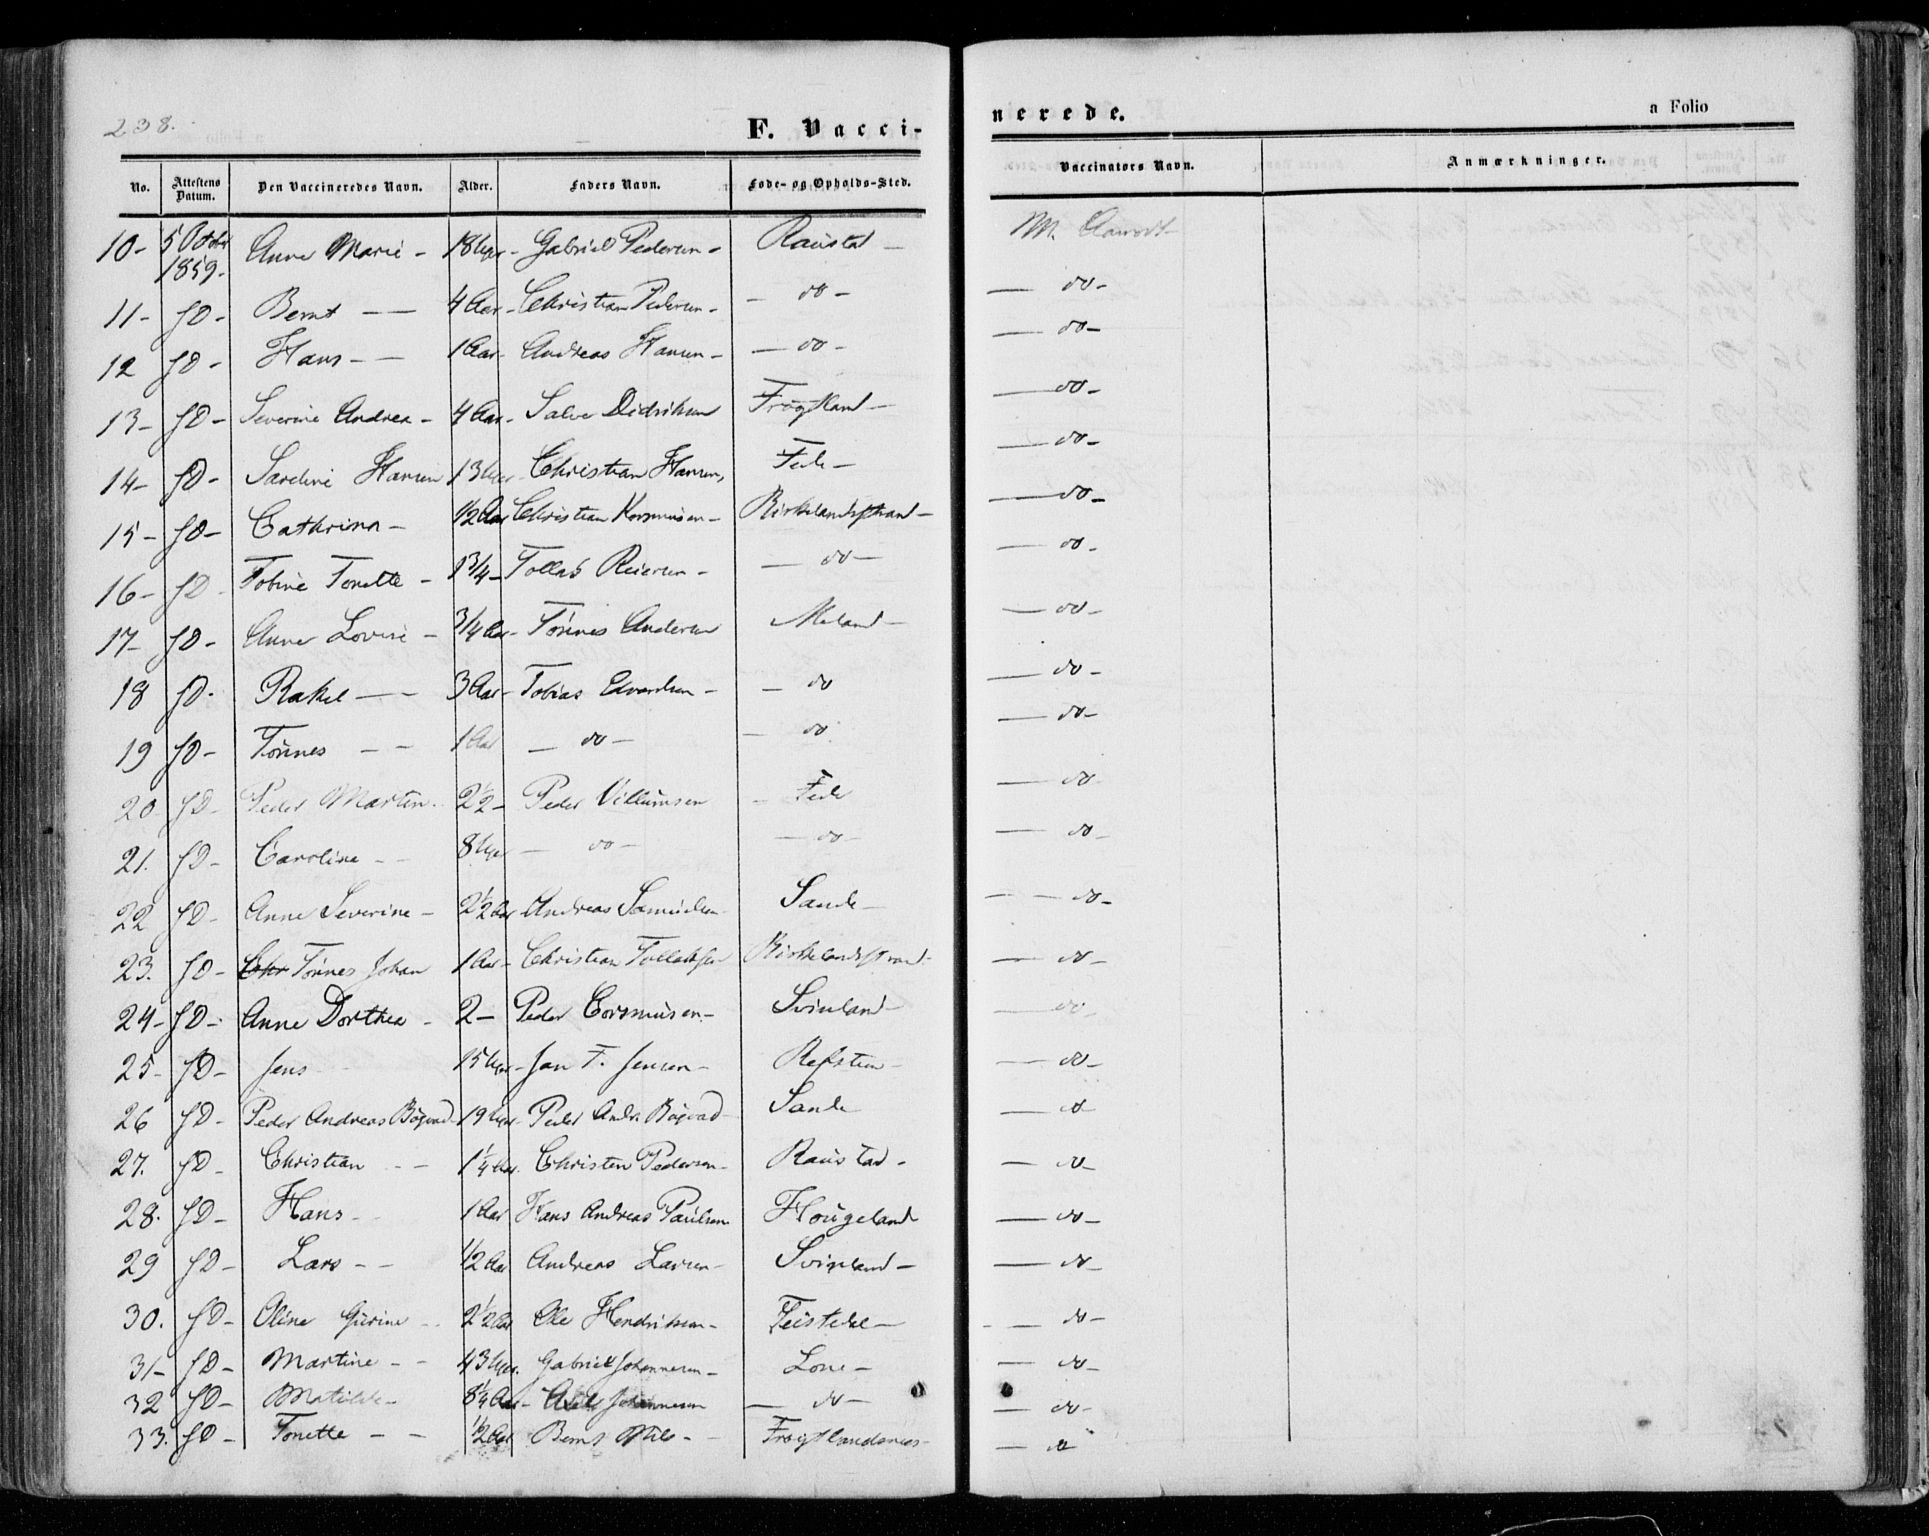 238.
F. Vacci-
nerede.
a Folio
No. Attestens Datum. Den Vaccineredes Navn. Alder. Faders Navn. Føde- og Opholds-Sted. Vaccinators Navn. Anmærkninger.
10- 5 Octobr 1859- Anne Marie - 18 Uger - Gabriel Pedersen - Raustad - M.
11- JD- Bernt - - 4 Aar - Christian Pedersen - - do - - do -
12 JD- Hans - - 1 Aar - Andreas Hansen - - do - - do -
13- JD- Severine Andrea - 4 Aar - Salve Didriksen Frøytland - - do -
14- JD- Sardine Hansine 13 Uger - Christian Hansen Fede - - do -
15- JD- Cathrina - 1/2 Aar Christian Korsmusen - Birkelandsstrand - - do -
16- JD- Tobine Tonette - 1 3/4 - Tollas Reiersen - - do - - do -
17- JD- Anne Lovise - 3/4 Aar - Tönnes Andersen Meland - - do -
18 JD- Rakel - - 3 Aar - Tobias Edvardsen - - do - do -
19 JD- Tönnes - - 1 Aar - do - - do - do -
20 JD- Peder Martin - 2 1/2 - Peder Villumsen - Fede - do -
21. JD- Caroline - - 8 Uger - do - - do - - do -
22 JD- Anne Severine - 2 1/2 Aar Andreas Samuelsen Sande - - - do -
23. JD- Chr Tönnes Johan 1 Aar - Christian Tollaksen Birkelandsstrand - - do -
24- JD- Anne Dorthea - 2 - Peder Corsmusen - Svinland - - do -
25- JD- Jens 15 Uger - Jan T. Jensen - Refsten - - do -
26 JD- Peder Andreas Bögvad - 19 Uger - Peder Andr Bögvad - Sande - do
27. JD- Christian - - 1 1/4 Aar. Christen Pedersen - Raustad - - do -
28. JD- Hans - 1 Aar Hans Andreas Paulsen Hougeland - do -
29 JD- Lars - - 1/2 Aar Andreas Larsen - Svinland - - do -
30. JD- Oline Gurine - 2 1/2 Aar Ole Hendriksen - Feistedal - - - do -
31- JD- Martine - - 43 Uger. Gabriel Johannesen - Lone - - do -
32 JD- Matilde - 8 1/4 Aar - Johannesen - do - - do -
33. JD- Tonette - - 1/2 Aar Bernt Nils - Frøytlandsnes - - do